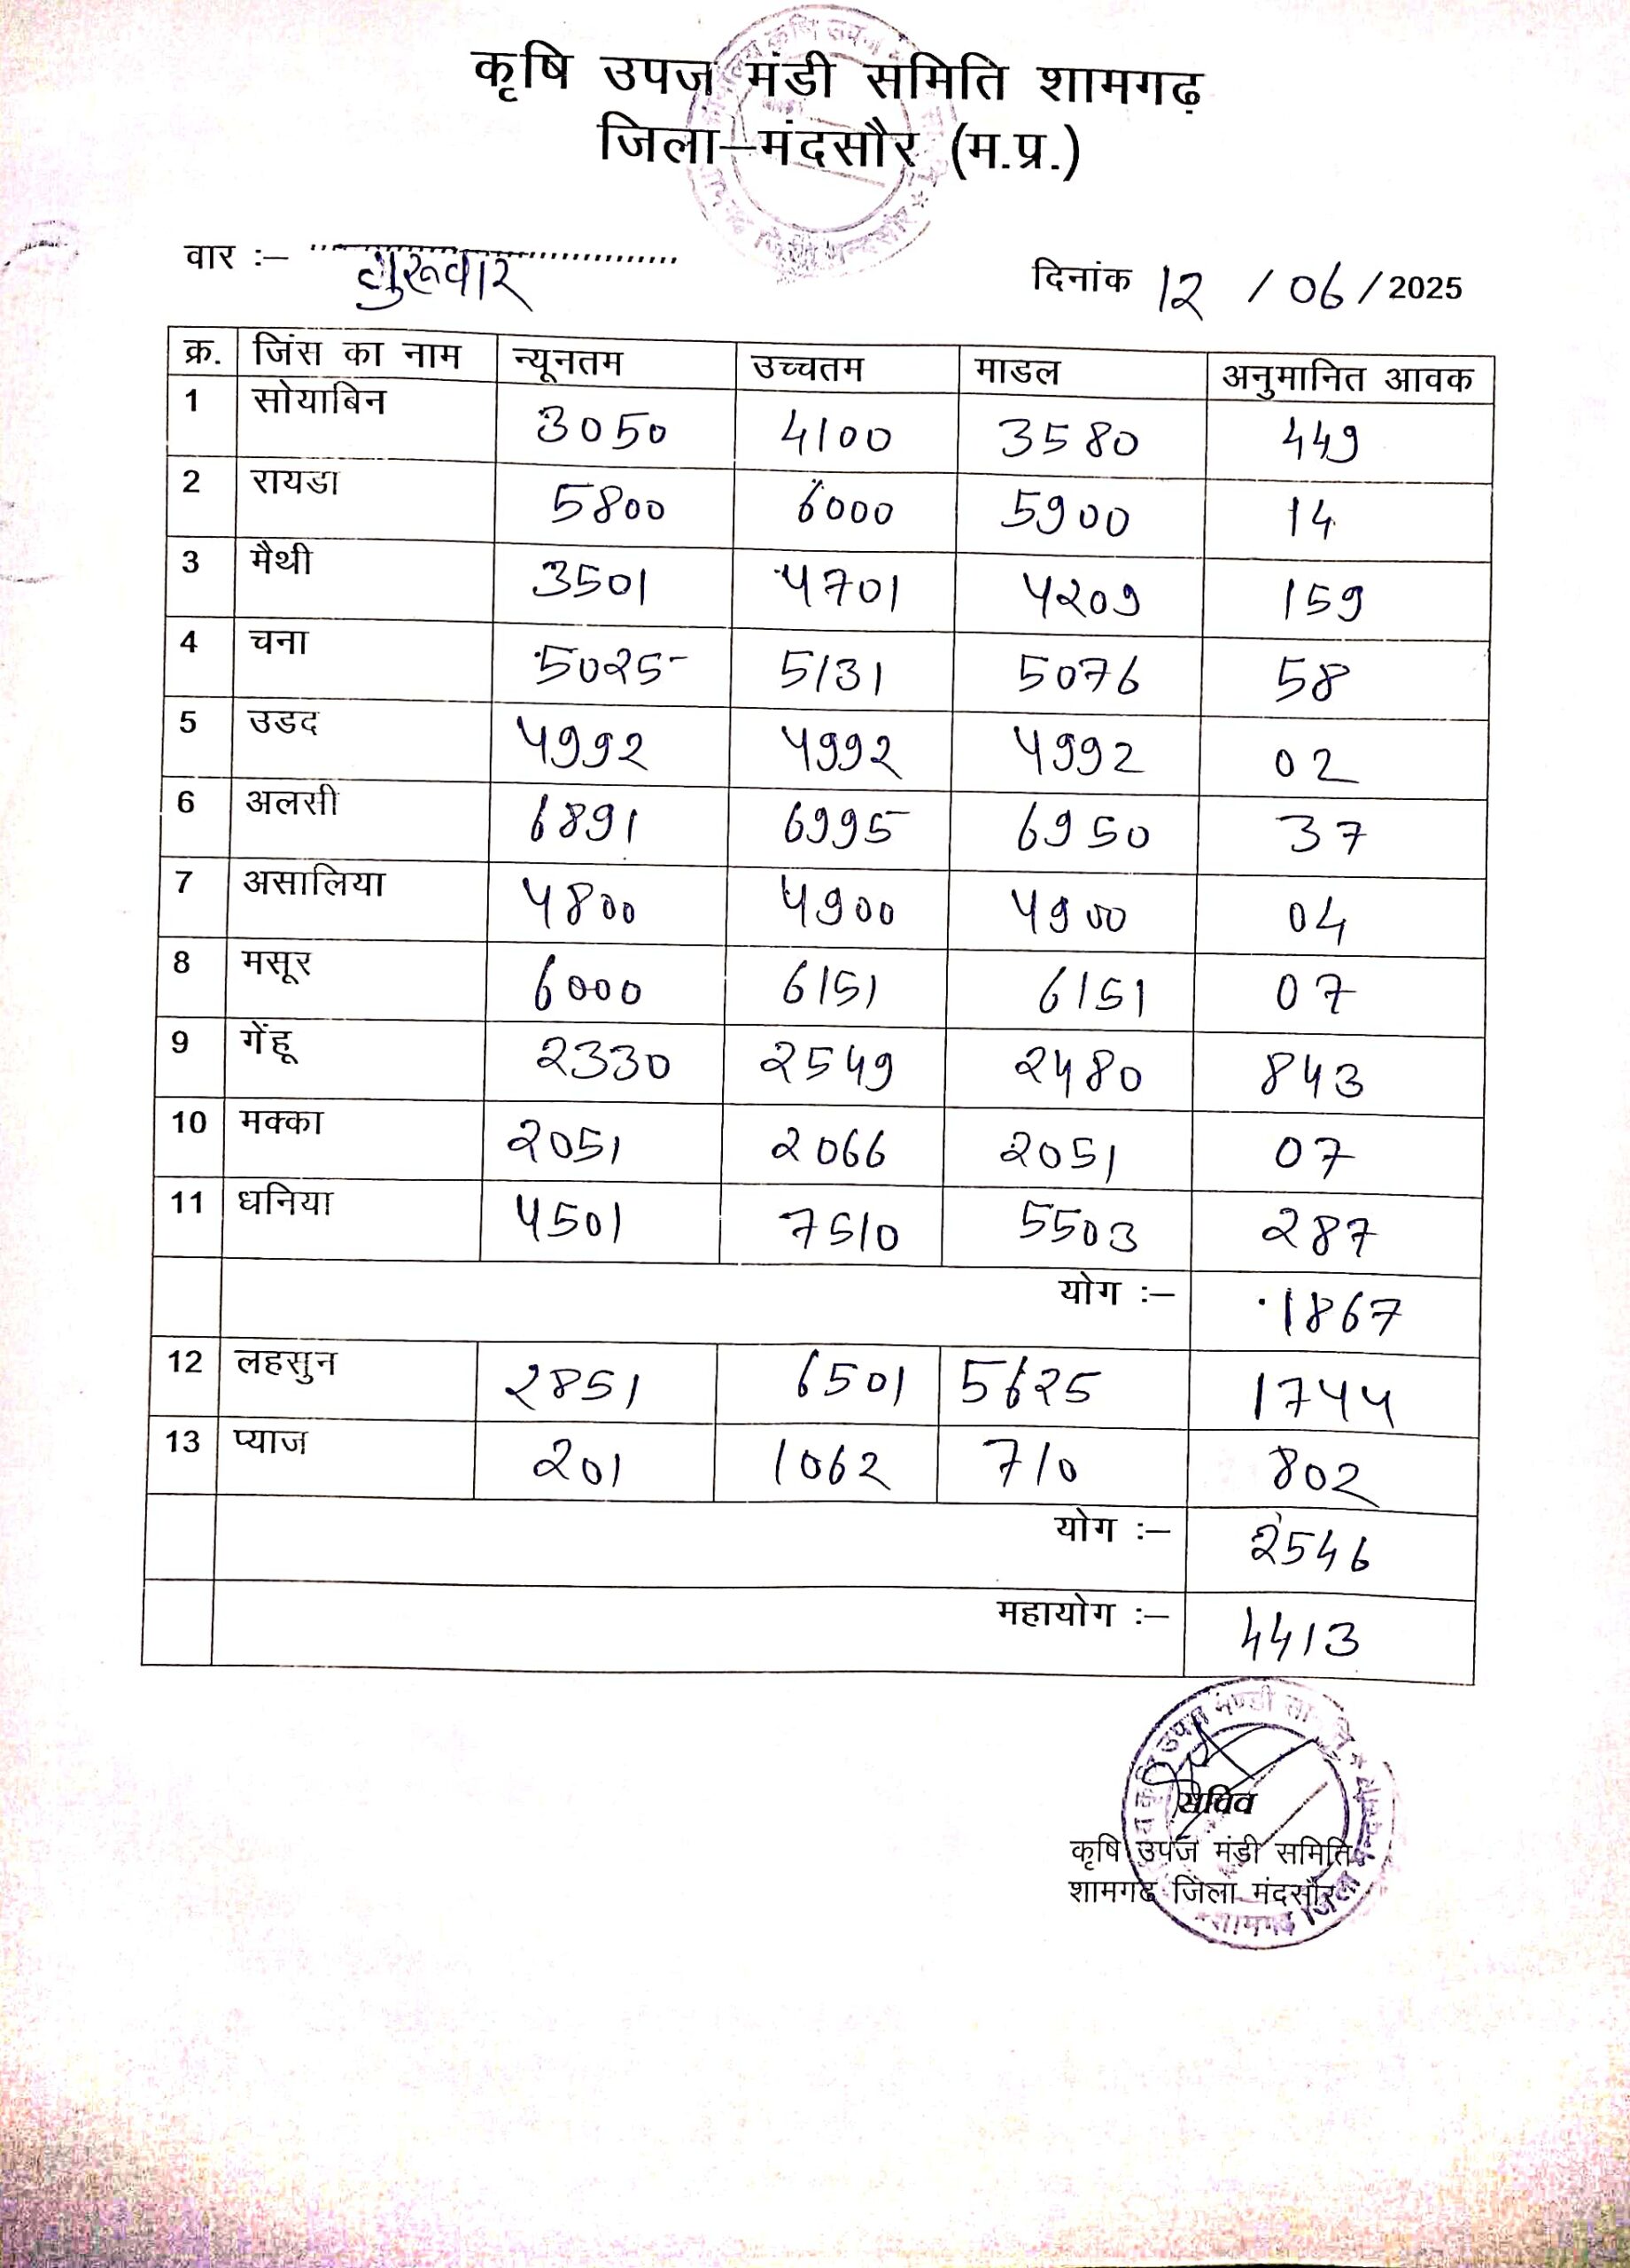 कृषि उपज मंडी समिति शामगढ़
जिला–मंदसौर (म.प्र.)
वार :– गुरूवार
दिनांक 12 / 06 / 2025
क्र. जिंस का नाम न्यूनतम उच्चतम माडल अनुमानित आवक
1 सोयाबिन 3050 4100 3580 449
2 रायडा 5800 6000 5900 14
3 मैथी 3501 4701 4209 159
4 चना 5025 5131 5076 58
5 उडद 4992 4992 4992 02
6 अलसी 6891 6995 6950 37
7 असालिया 4800 4900 4900 04
8 मसूर 6000 6151 6151 07
9 गेंहू 2330 2549 2480 843
10 मक्का 2051 2066 2051 07
11 धनिया 4501 7510 5503 287
योग :– 1867
12 लहसुन 2851 6501 5625 1744
13 प्याज 201 1062 710 802
योग :– 2546
महायोग :– 4413
सचिव
कृषि उपज मंडी समिति
शामगढ जिला मंदसौर